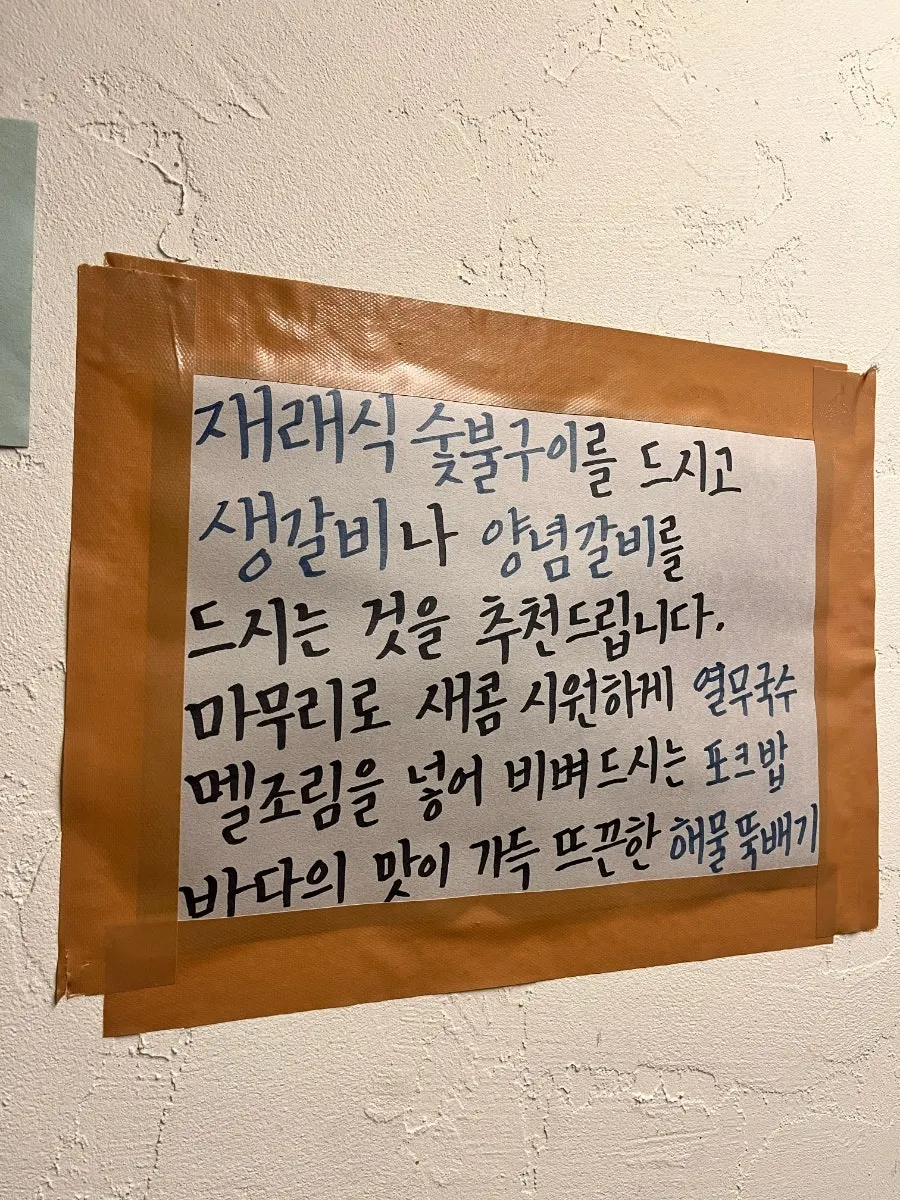 재래식 숯불구이를 드시고
생갈비나 양념갈비를
드시는 것을 추천드립니다.
마무리로 새콤 시원하게 열무국수
멜조림을 넣어 비벼드시는 포크밥
바다의 맛이 가득 뜨끈한 해물뚝배기